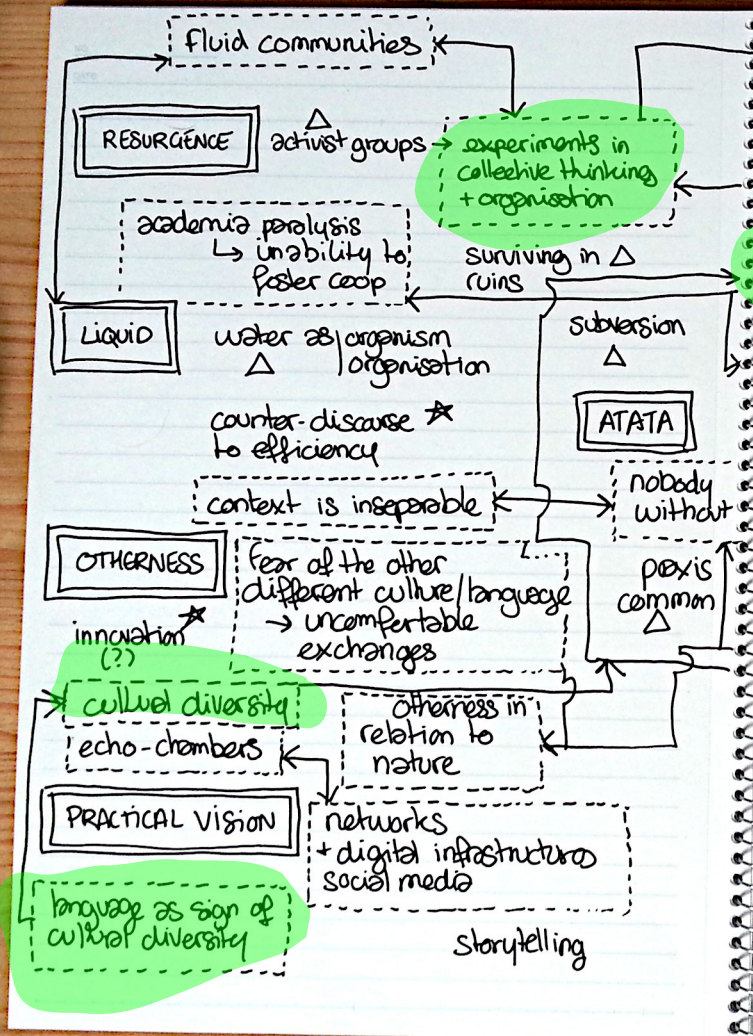 fluid communities
RESURGENCE
activist groups
experiments in
collective thinking
+ organisation
academia paralysis
↳ inability to
foster coop
surviving in
ruins
LIQUID
water as/organism
organisation
subversion
counter-discourse
to efficiency
ATATA
context is inseparable
nobody
without
OTHERNESS
fear of the other
different culture/language
→ uncomfertable
exchanges
praxis
common
innovation
(?)
cultural diversity
echo-chambers
otherness in
relation to
nature
PRACTICAL VISION
networks
+ digital infrastructures
social media
language as sign of
cultural diversity
storytelling